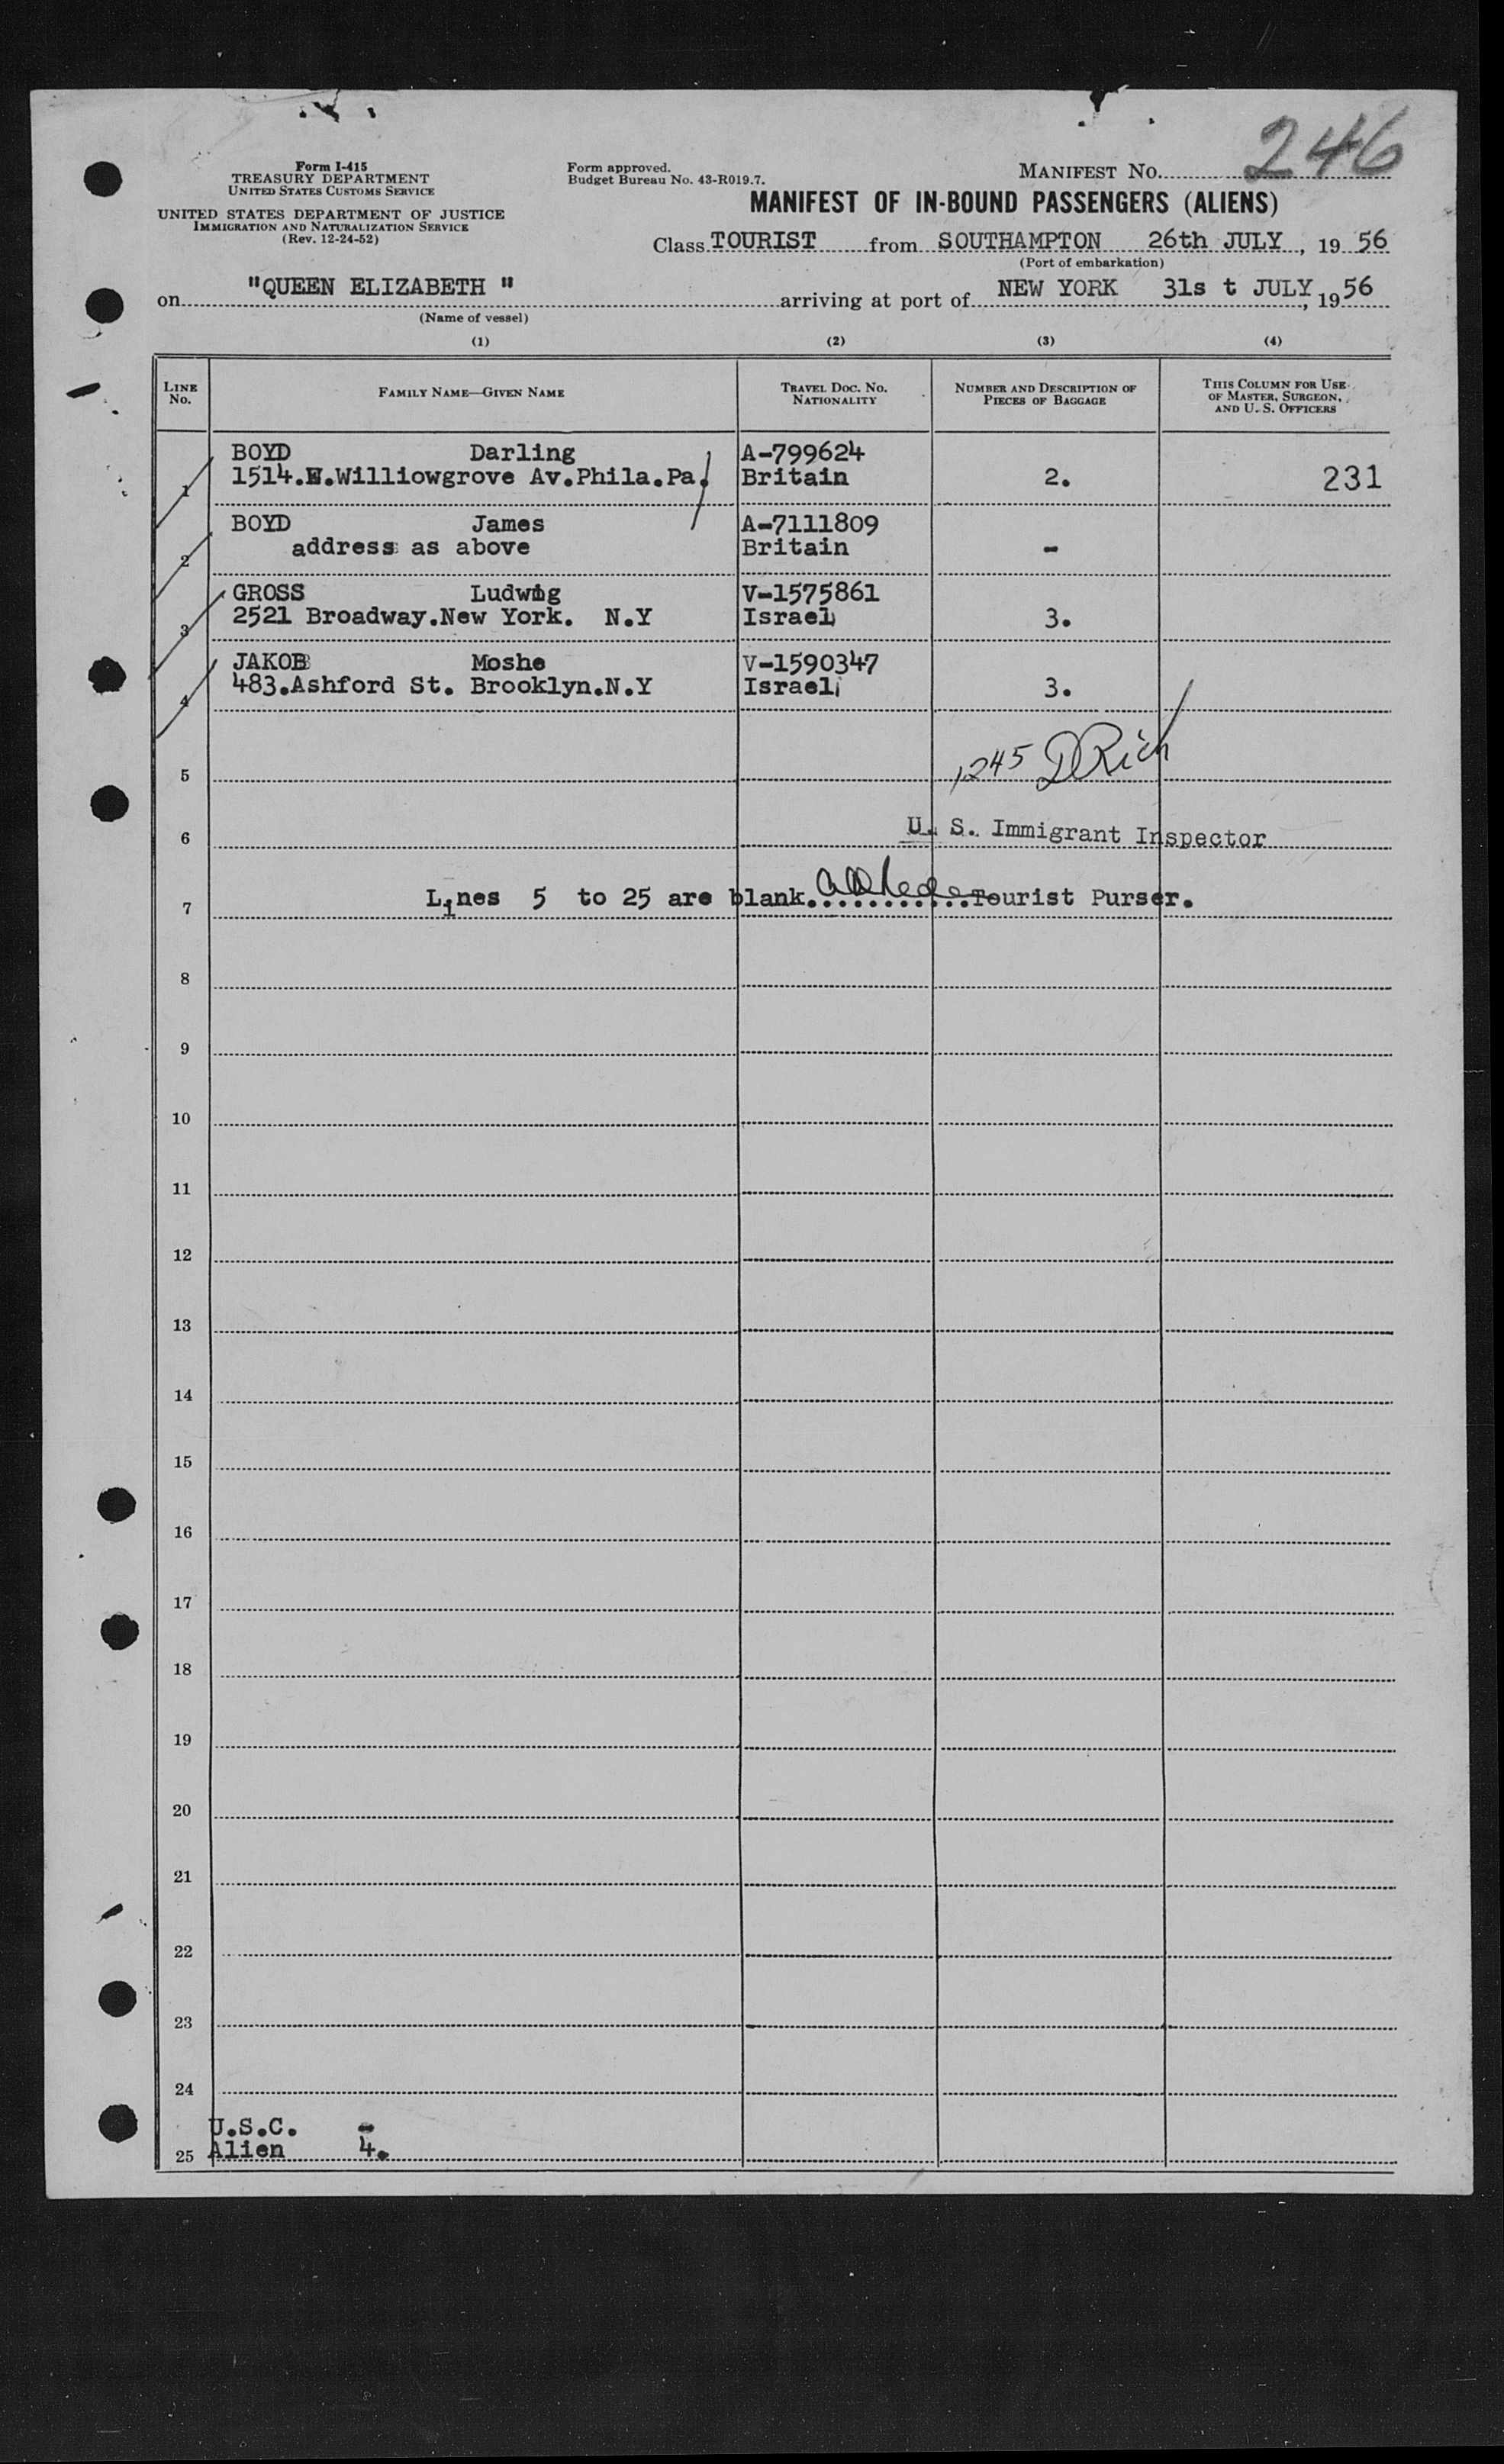 246
Form I-415
TREASURY DEPARTMENT
UNITED STATES CUSTOMS SERVICE
UNITED STATES DEPARTMENT OF JUSTICE
IMMIGRATION AND NATURALIZATION SERVICE
(Rev. 12-24-52)
Form approved.
Budget Bureau No. 43-R019.7.
MANIFEST NO.
MANIFEST OF IN-BOUND PASSENGERS (ALIENS)
Class TOURIST from SOUTHAMPTON 26th JULY, 19 56
(Port of embarkation)
on "QUEEN ELIZABETH " arriving at port of NEW YORK 31s t JULY, 19 56
(Name of vessel)
(1) (2) (3) (4)
LINE No. FAMILY NAME—GIVEN NAME TRAVEL DOC. NO. NATIONALITY NUMBER AND DESCRIPTION OF PIECES OF BAGGAGE THIS COLUMN FOR USE OF MASTER, SURGEON, AND U. S. OFFICERS
BOYD Darling A-799624
1 1514. .Williowgrove Av.Phila.Pa. Britain 2. 231
BOYD James A-7111809
2 address as above Britain -
GROSS Ludwig V-1575861
3 2521 Broadway.New York. N.Y Israel 3.
JAKOB Moshe V-1590347
4 483.Ashford St. Brooklyn.N.Y Israel 3.
5 1245 D Rich
6 U. S. Immigrant Inspector
7 Lines 5 to 25 are blank............Tourist Purser.
8
9
10
11
12
13
14
15
16
17
18
19
20
21
22
23
24
U.S.C. -
25 Alien 4.